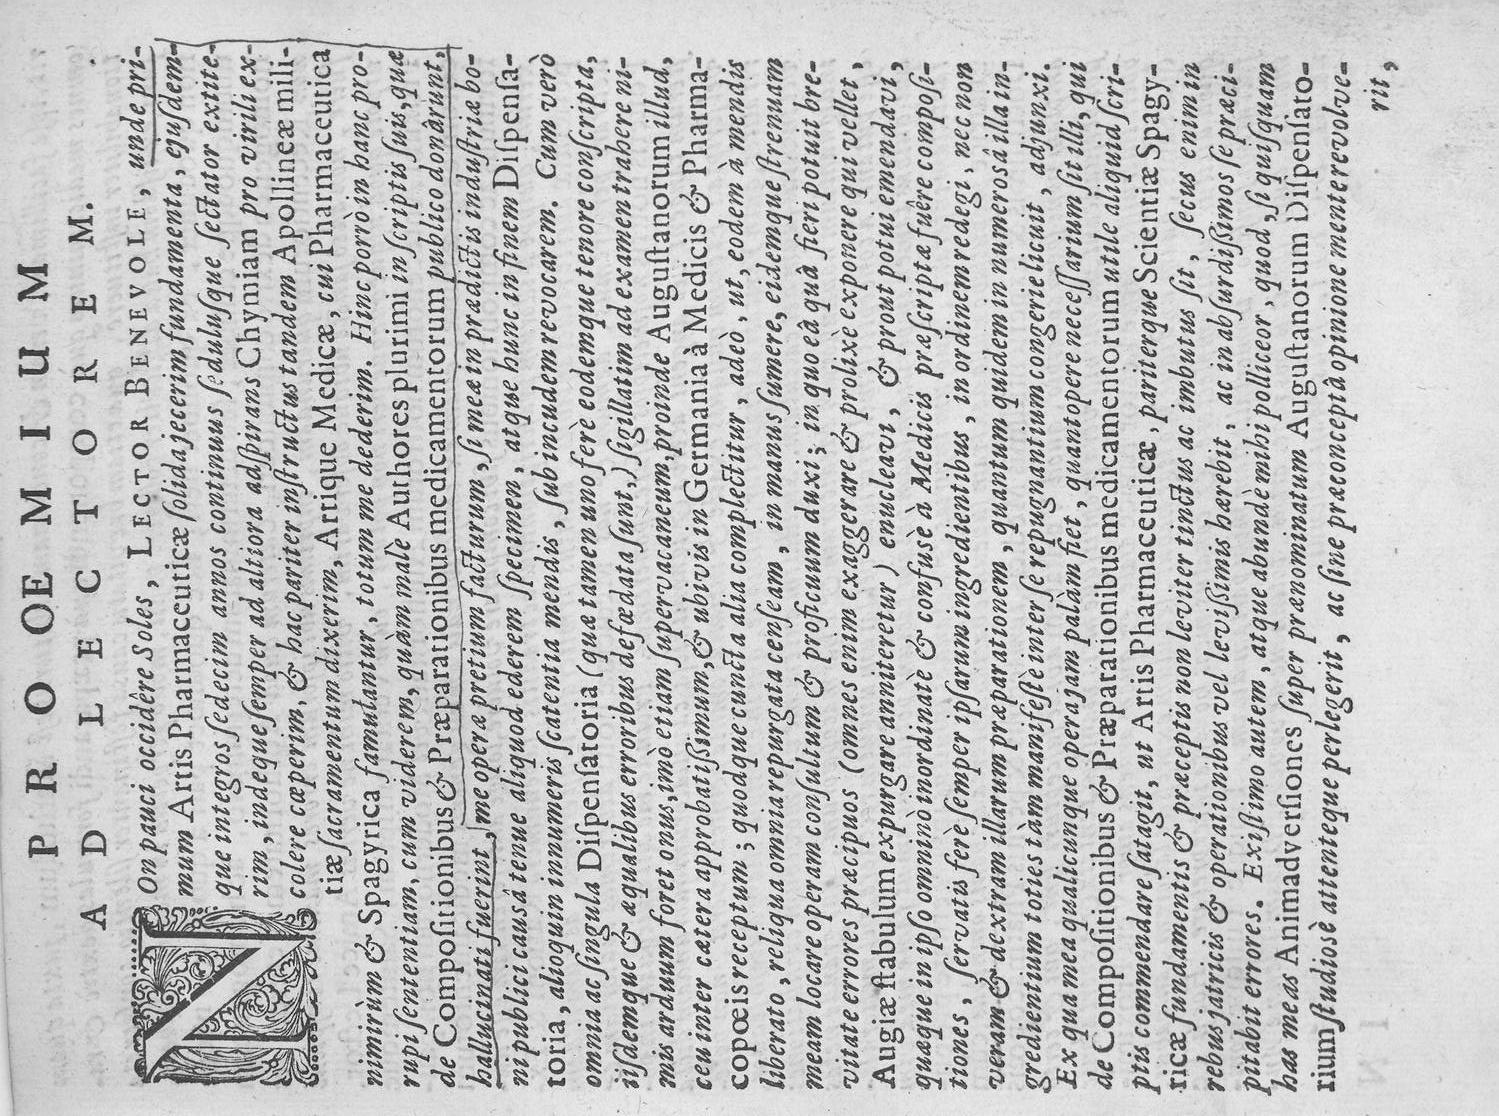 PROOEMIUM
AD LECTOREM.
NOn pauci occidêre Soles, LECTOR BENEVOLE, unde pri-
mum Artis Pharmaceuticæ ſolida jecerim fundamenta, ejuſdem-
que integros ſedecim annos continuus ſeduluſque ſectator extite-
rim, indeque ſemper ad altiora adſpirans Chymiam pro virili ex-
colere cæperim, & hac pariter inſtructus tandem Apollineæ mili-
tiæ ſacramentum dixerim, Artique Medicæ, cui Pharmaceutica
nimirùm & Spagyrica famulantur, totum me dederim. Hinc porrò in hanc pro-
rupi ſententiam, cum viderem, quàm malè Authores plurimi in ſcriptis ſuis, quæ
de Compoſitionibus & Præparationibus medicamentorum publico donârunt,
hallucinati fuerint, me operæ pretium facturum, ſi meæ in prædictis induſtriæ bo-
ni publici causâ tenue aliquod ederem ſpecimen, atque hunc in finem Diſpenſa-
toria, alioquin innumeris ſcatentia mendis, ſub incudem revocarem. Cum verò
omnia ac ſingula Diſpenſatoria (quæ tamen uno ferè eodemque tenore conſcripta,
iiſdemque & æqualibus erroribus defœdata ſunt,) ſigillatim ad examen trahere ni-
mis arduum foret onus, imò etiam ſupervacaneum, proinde Auguſtanorum illud,
ceu inter cætera approbatiſſimum, & ubivis in Germania à Medicis & Pharma-
copœis receptum; quodque cuncta alia complectitur, adeò, ut, eodem à mendis
liberato, reliqua omnia repurgata cenſeam, in manus ſumere, eidemque ſtrenuam
meam locare operam conſultum & proficuum duxi; in quo eâ quâ fieri potuit bre-
vitate errores præcipuos (omnes enim exaggerare & prolixè exponere qui vellet,
Augiæ ſtabulum expurgare anniteretur) enucleavi, & prout potui emendavi,
quæque in ipſo omninò inordinatè & confusè à Medicis præſcriptæ fuêre compoſi-
tiones, ſervatis ferè ſemper ipſarum ingredientibus, in ordinem redegi, nec non
veram & dextram illarum præparationem, quantum quidem in numerosâ illa in-
gredientium toties tàm manifeſtè inter ſe repugnantium congerie licuit, adjunxi.
Ex qua mea qualicunque opera jam palàm fiet, quantopere neceſſarium ſit illi, qui
de Compoſitionibus & Præparationibus medicamentorum utile aliquid ſcri-
ptis commendare ſatagit, ut Artis Pharmaceuticæ, pariterque Scientiæ Spagy-
ricæ fundamentis & præceptis non leviter tinctus ac imbutus ſit, ſecus enim in
rebus jatricis & operationibus vel leviſſimis hærebit, ac in abſurdiſſimos ſe præci-
pitabit errores. Exiſtimo autem, atque abundè mihi polliceor, quod, ſi quiſquam
has meas Animadverſiones ſuper prænominatum Auguſtanorum Diſpenſato-
rium ſtudiosè attenteque perlegerit, ac ſine præconceptâ opinione mente revolve-
rit,